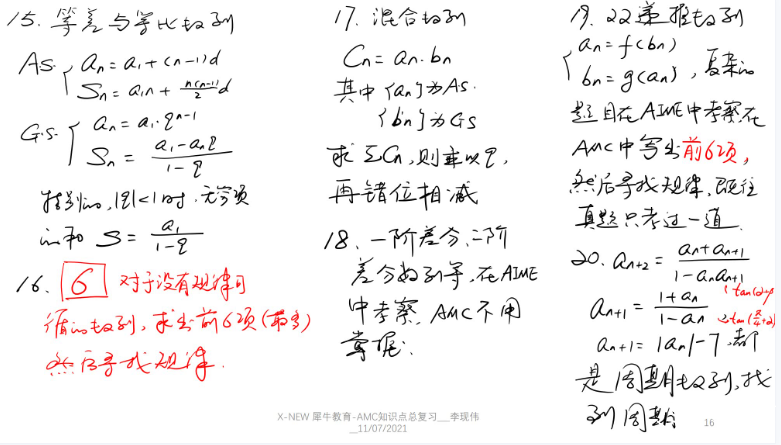 15. 等差与等比数列
AS. { an = a1 + (n-1)d
Sn = a1n + n(n-1)/2 d
G.S. { an = a1·q^(n-1)
Sn = (a1 - anq)/(1-q)
特别的, |q|<1时, 无穷项
的和 S = a1/(1-q)
16. 6 对于没有规律可
循的数列, 求出前6项(最多)
然后寻找规律.
17. 混合数列
Cn = an·bn
其中{an}为AS.
{bn}为GS
求ΣCn, 则乘以q,
再错位相减
18. 一阶差分、二阶
差分数列等, 在AIME
中考察, AMC不用
掌握.
19. 22递推数列
{ an = f(bn)
bn = g(an) , 复杂的
题目在AIME中考察在
AMC中写出前6项,
然后寻找规律, 既往
真题只考过一道.
20. an+2 = (an + an+1)/(1 - an an+1)
an+1 = (1+an)/(1-an)
an+1 = |an| - 7, 都
是周期数列, 找
到周期
X-NEW 犀牛教育-AMC知识点总复习__李现伟
__11/07/2021
16